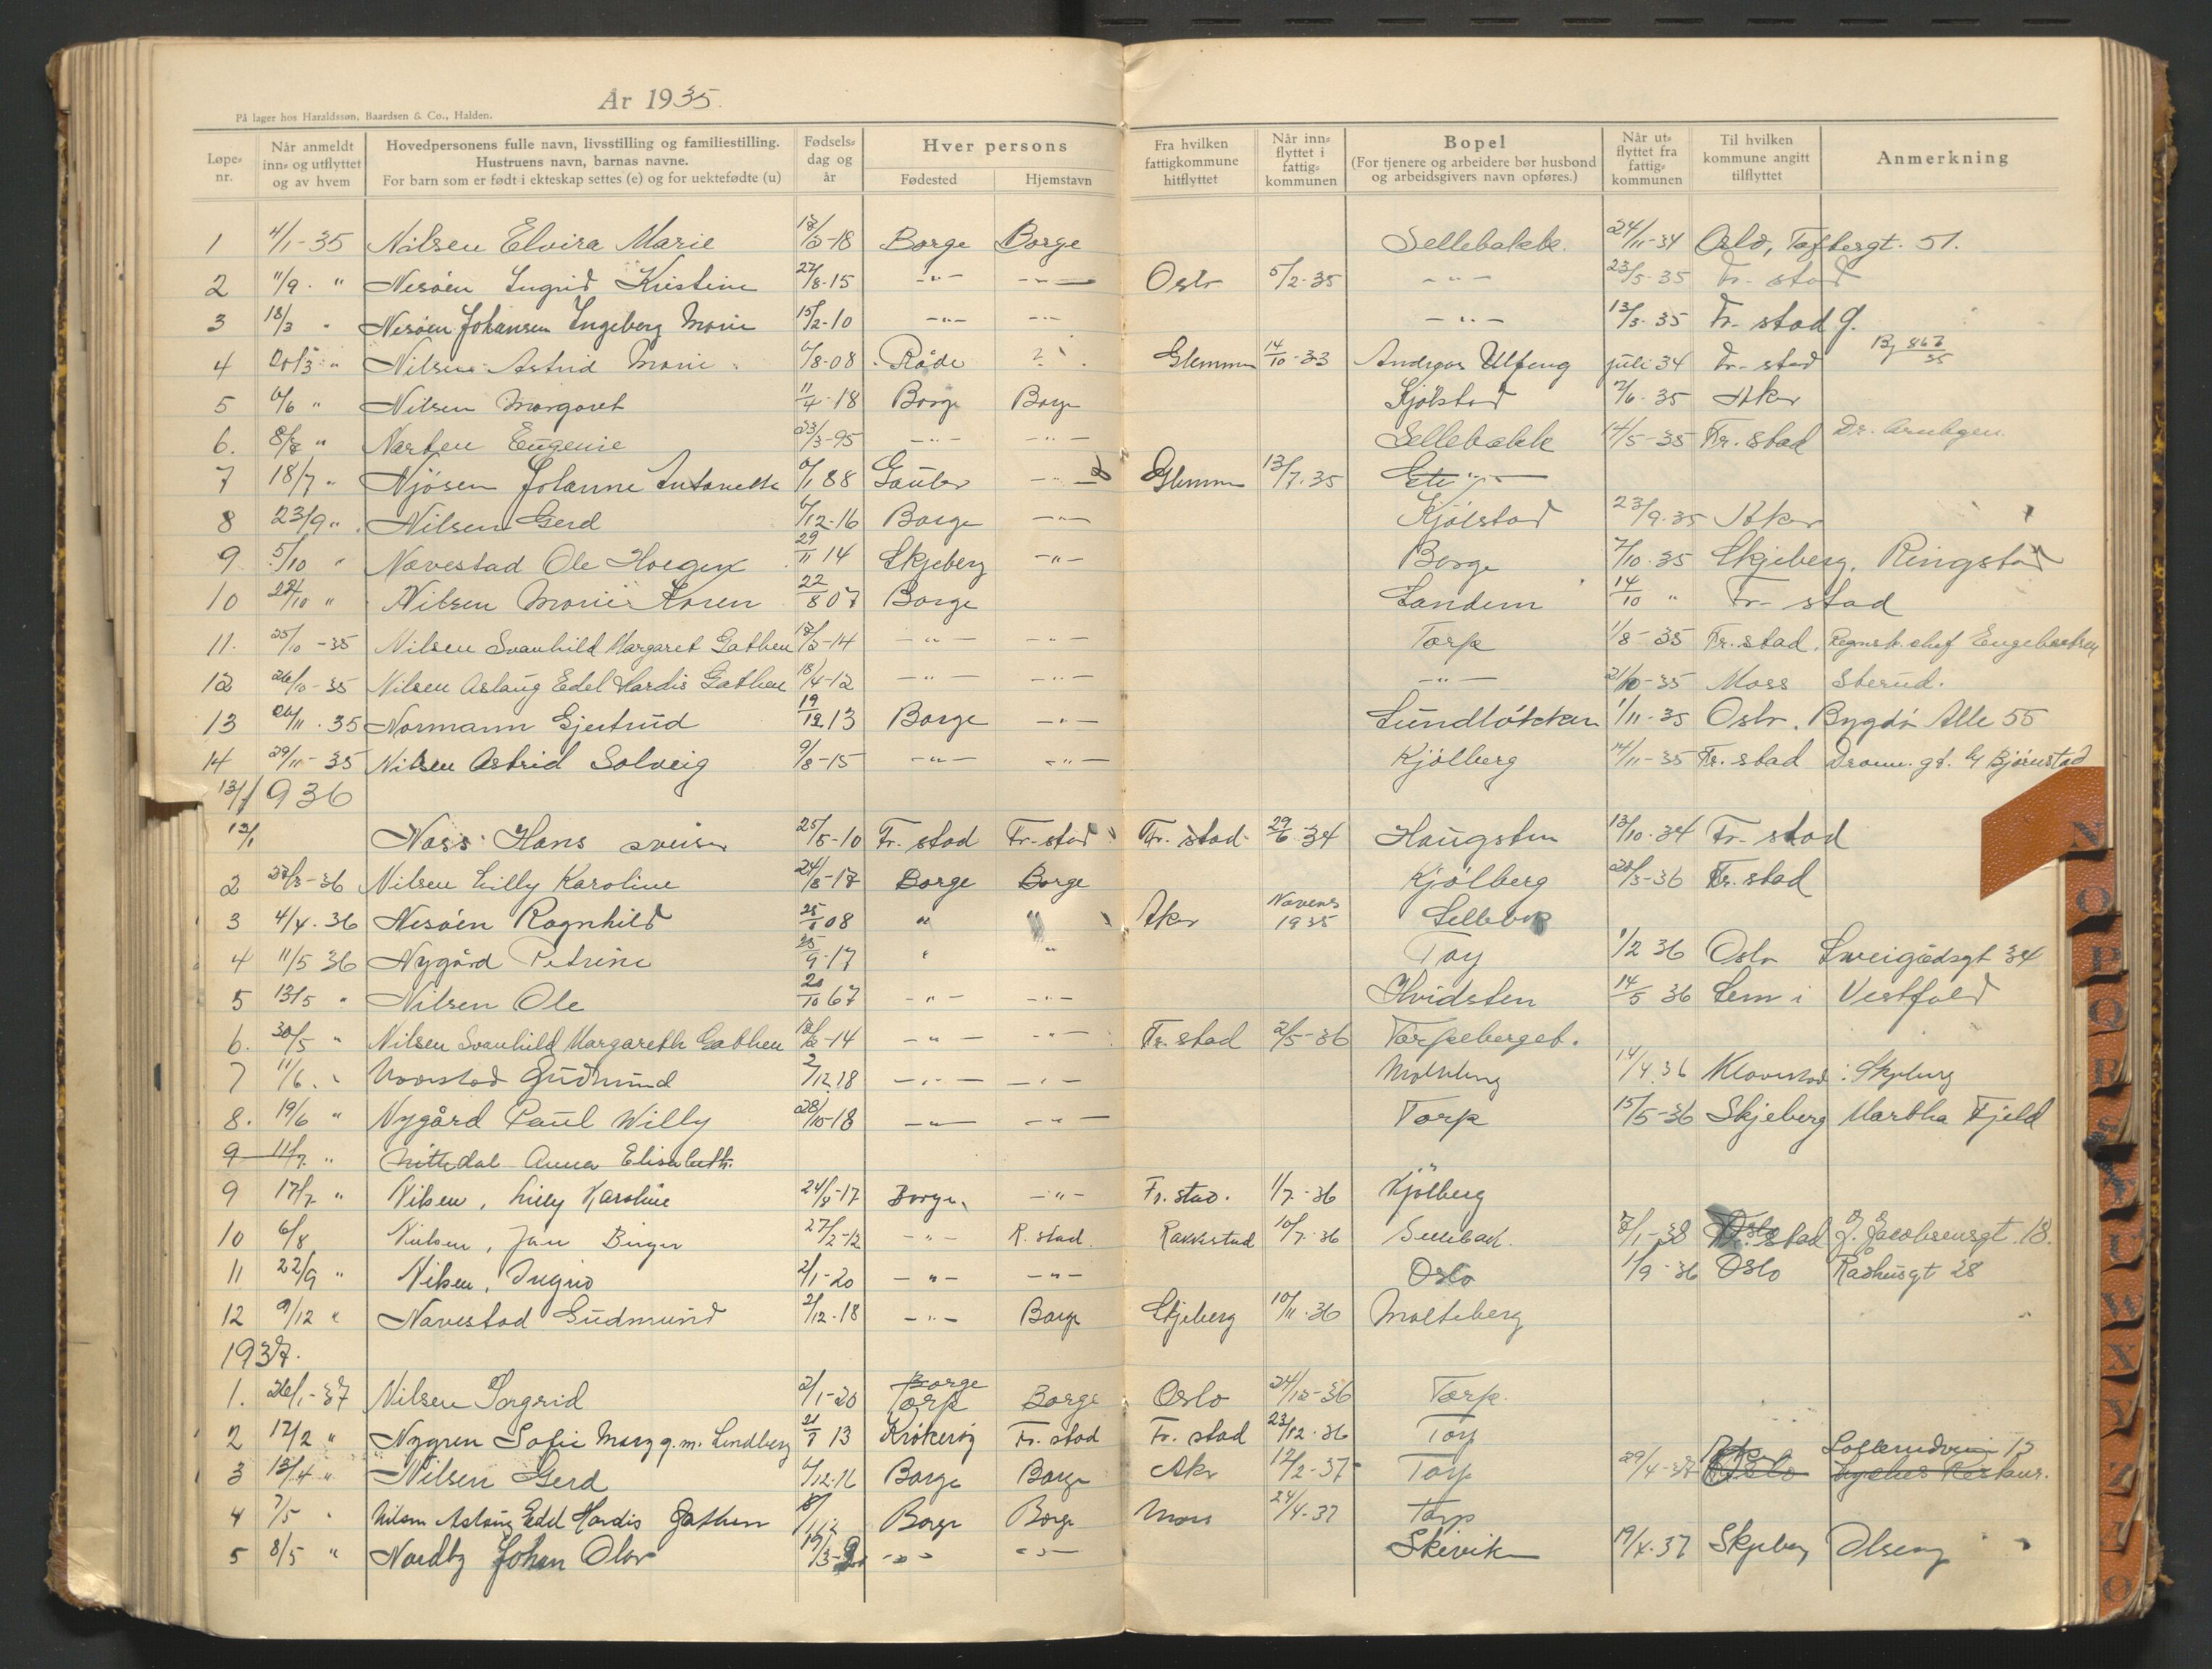 År 1935.
På lager hos Haraldssøn, Baardsen & Co., Halden.
Løpe-nr. Når anmeldt inn- og utflyttet og av hvem Hovedpersonens fulle navn, livsstilling og familiestilling. Hustruens navn, barnas navne. For barn som er født i ekteskap settes (e) og for uektefødte (u) Fødsels-dag og år Hver persons Fødested Hjemstavn Fra hvilken fattigkommune hitflyttet Når inn-flyttet i fattig-kommunen Bopel (For tjenere og arbeidere bør husbond og arbeidsgivers navn opføres.) Når ut-flyttet fra fattig-kommunen Til hvilken kommune angitt tilflyttet Anmerkning
1 4/1-35 Nilsen Elvira Marie Borge Borge Sellebakk. 24/11-34 Oslo, Toftbergt. 51.
2 11/9 " Nesøen Ingrid Kristine 27/8-15 -"- -"- Oslo 5/2-35 -"- 23/5-35 Fr-stad
3 18/3 " Nesøen Johansen Ingeberg Marie 15/2-10 -"- -"- -"- 13/3-35 Fr-stad g.
4 20/3 " Nilsen Astrid Marie 6/8-08 Råde ? Glemmen 14/10-33 Andreas Ulfeng juli 34 Fr-stad
5 6/6 " Nilsen Margaret 11/4-18 Borge Borge Kjølstad 7/6-35 Aker
6. 8/8 " Narten Eugenie 23/3-95 -"- -"- Sellebakk 14/5-35 Fr.stad
7 18/7 " Njøsen Johanne Antonette 6/1 88 Gaular -"- Glemmen 13/7-35
8 23/9 " Nilsen Gerd 6/12-16 Borge -"- Kjølstad 23/9-35 Aker
9 5/10 " Navestad Ole Holger 29/11 14 Skjeberg -"- Borge 7/10-35 Skjeberg, Ringstad
10 22/10 " Nilsen Marie Karen 22/8 07 Borge Sandem 14/10 " Fr-stad
11. 25/10-35 Nilsen Svanhild Margaret Gathen 18/5-14 -"- -"- Torp 1/8-35 Fr.stad. Regnsk.chef Engebretsen
12 26/10-35 Nilsen Aslaug Edel Hardis Gathen 18/4-12 -"- -"- -"- 21/10-35 Moss Sterud.
13 26/11-35 Normann Gjertrud 19/12 13 Borge -"- Lundløkken 1/11-35 Oslo. Bygdø Alle 55
14 29/11-35 Nilsen Astrid Solveig 9/8-15 -"- -"- Kjølberg 14/11-35 Fr.stad Dronn. gt. Bjørnstad
1936
Nass Hans sveiser 25/5-10 Fr.stad Fr-stad Fr.stad 29/6-34 Haugsten 13/10-34 Fr-stad
2 27/3-36 Nilsen Lilly Karoline 24/8-17 Borge Borge Kjølberg 20/3-36 Fr.stad
3 4/4-36 Nesøen Ragnhild " " Aker 1935 Sellebak
4 11/5 36 Nygård Petrine 25/9-17 " " Torp 1/2 36 Oslo
5 13/5 " Nilsen Ole 20/10 67 -"- -"- Hvidsten 14/5 36 Sem i Vestfold
6. 30/5 " Nilsen Svanhild Margareth Gathen 18/5-14 -"- -"- Fr.stad 2/5-36 Torpeberget.
7 11/6 " Navestad Gudmund 2/12 18 -"- -"- Molteberg 14/4 36 Klavestad i Skjeberg
8. 19/6 " Nygård Paul Willy 28/10-18 -"- -"- Torp 15/5-36 Skjeberg Martha Fjeld
9 11/7 " Nittedal Anna Elisabeth.
9 17/7 " Nilsen, Lilly Karoline 24/8-17 Borge -"- Fr.stad. 1/7-36 Kjølberg
10 6/8 Nielsen, Jan Birger 27/2-12 -"- R.stad Rakkestad 10/7-36 Sellebak. 7/1-38 J. Jacobsensgt. 18.
11 22/9 " Nilsen, Ingrid 2/1-20 -"- -"- Oslo 1/9-36 Oslo Rådhusgt 28
12 9/12 " Navestad Gudmund 2/12-18 -"- Borge Skjeberg 10/11-36 Molteberg
1937.
1. 26/1-37 Nilsen Ingrid 2/1-20 Borge Torp Borge Oslo 24/12-36 Torp.
2 17/2 " Nygren Sofie Mary g.m. Lundberg 13 Kråkerøy Fr.stad Fr.stad 23/12-36 Torp
3 13/4 " Nilsen Gerd 6/12-16 Borge Borge Aker 12/2-37 Torp 29/4-37 Oslo
4 7/5 " Nilsen Aslaug Edel Hardis Gathen Borge Borge Moss 24/4-37 Torp
5 8/5 " Nordby Johan Olav -"- -"- Skivik 19/4-37 Skjeberg Olseng
N O P Q R S T U V W X Y Z Æ Ø